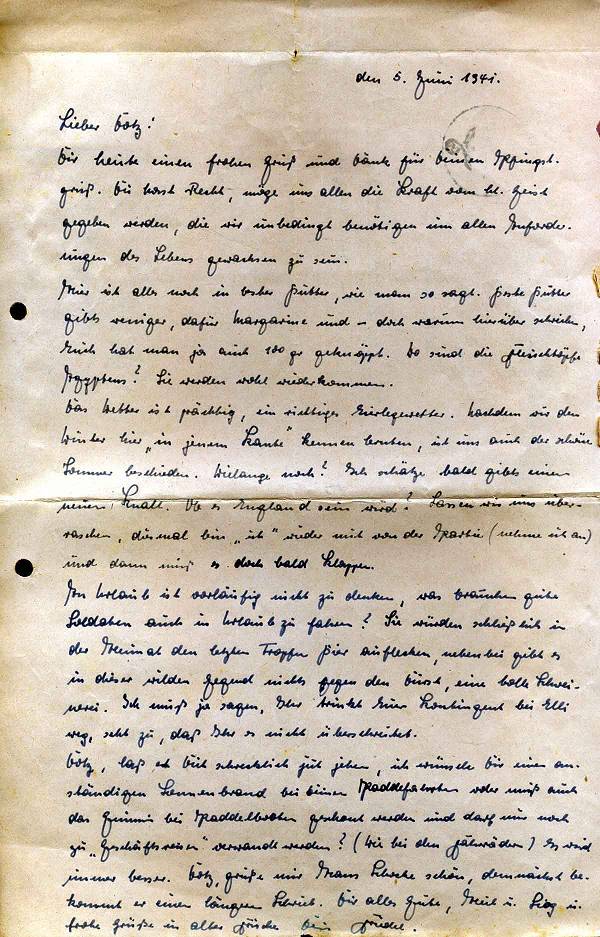 den 5. Juni 1941.
Lieber Götz!
Dir heute einen frohen Gruß und Dank für Deinen Pfingst-
gruß. Du hast Recht, möge uns allen die Kraft vom hl. Geist
gegeben werden, die wir unbedingt benötigen um allen Anforder-
ungen des Lebens gewachsen zu sein.
Hier ist alles noch in bester Butter, wie man so sagt. Beste Butter
gibts weniger, dafür Margarine und – doch warum hierüber schreiben,
Euch hat man ja auch 100 gr geknöppt. Wo sind die Fleischtöpfe
Ägyptens? Sie werden wohl wiederkommen.
Das Wetter ist prächtig, ein richtiges Eierlegewetter. Nachdem wir den
Winter hier "in jenem Lande" kennen lernten, ist uns auch der schöne
Sommer beschieden. Wielange noch? Ich schätze bald gibts einen
neuen Knall. Ob es England sein wird? Lassen wir uns über-
raschen, diesmal bin "ich" wieder mit von der Partie (nehme ich an)
und dann muß es doch bald klappen.
An Urlaub ist vorläufig nicht zu denken, was brauchen gute
Soldaten auch in Urlaub zu fahren? Sie würden schließlich in
der Heimat den letzten Tropfen Bier auflecken, nebenbei gibt es
in dieser wilden Gegend nichts gegen den Durst, eine tolle Schwei-
nerei. Ich muß ja sagen, Ihr trinkt Euer Kontingent bei Elli
weg, seht zu, daß Ihr es nicht überschreitet.
Götz, laß et Dich schrecklich jut jehen, ich wünsche Dir einen an-
ständigen Sonnenbrand bei Deinen Paddelfahrten oder muß auch
das Gummi bei Paddelbooten geschont werden und darf nur noch
zu "Geschäftsreisen" verwandt werden? (Wie bei den Fahrrädern) Es wird
immer besser. Götz, grüße mir Hans schön, demnächst be-
kommt er einen längeren Schrieb. Dir alles Gute, Heil u. Sieg u.
frohe Grüße in alter Frische Dein